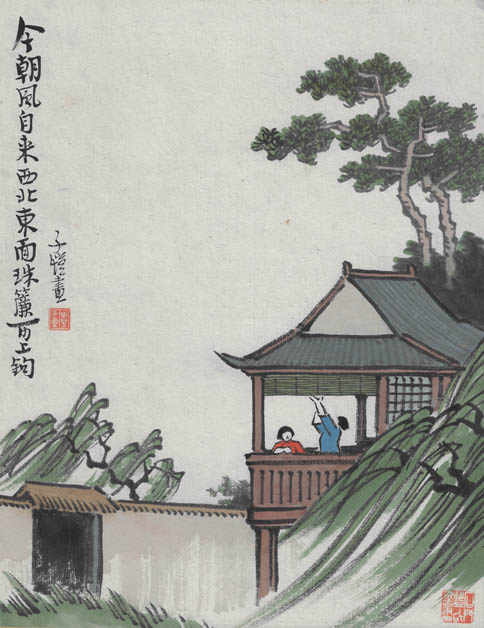 今朝風自来西北東面珠簾可上鉤
子愷畫